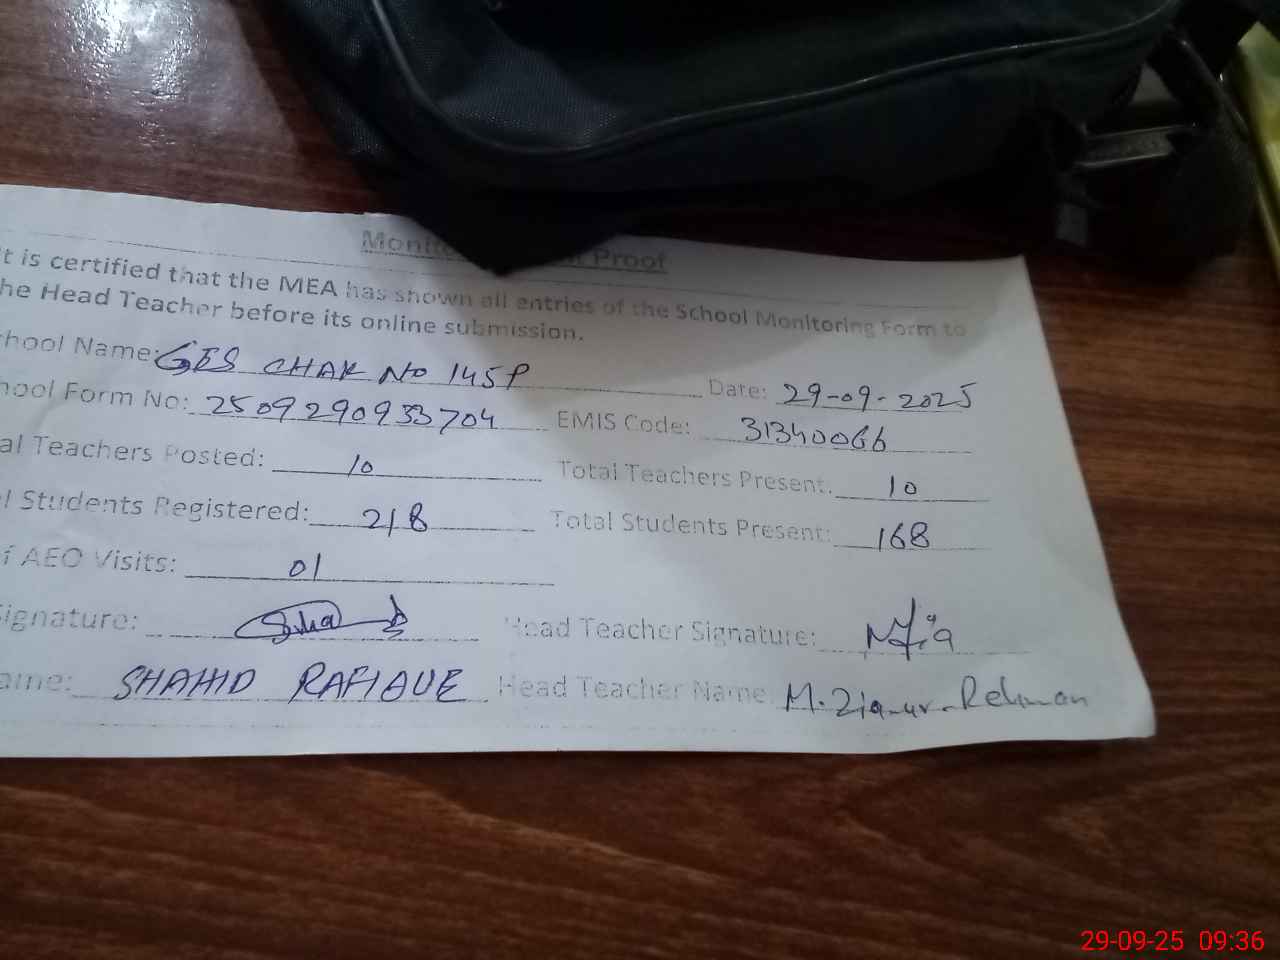 Monit Proof
t is certified that the MEA has shown all entries of the School Monitoring Form to
he Head Teacher before its online submission.
hool Name: GES CHAK NO 145P Date: 29-09-2025
hool Form No: 2509290933704 EMIS Code: 31340066
al Teachers Posted: 10 Total Teachers Present: 10
l Students Registered: 218 Total Students Present: 168
f AEO Visits: 01
ignature: Head Teacher Signature:
ame: SHAHID RAFIQUE Head Teacher Name M. Zia-ur-Rehman
29-09-25 09:36